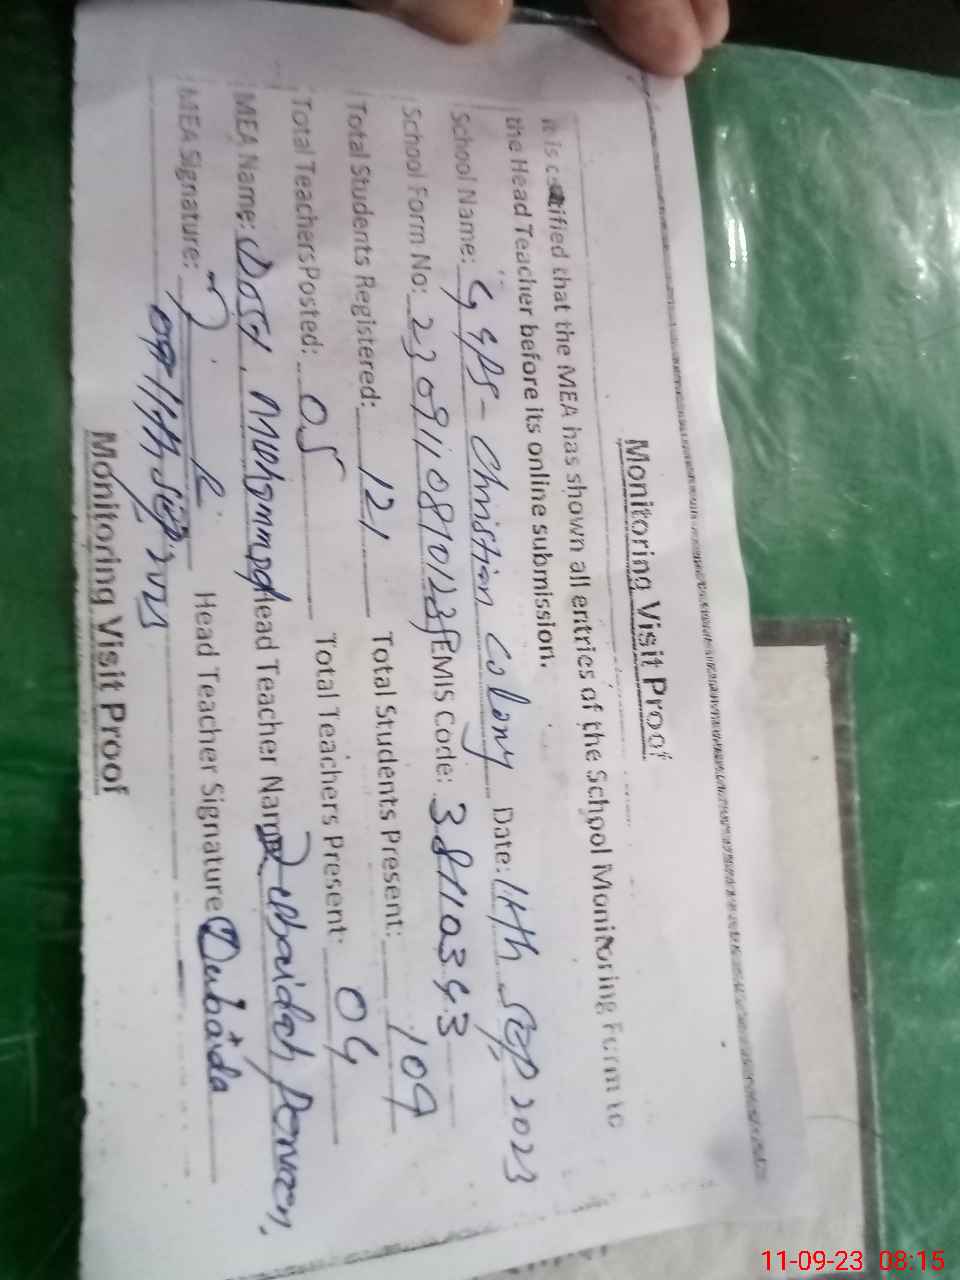 Monitoring Visit Proof
It is certified that the MEA has shown all entries of the School Monitoring Form to
the Head Teacher before its online submission.
School Name: GGPS- Christian Colony Date: 11th Sep 2023
School Form No: EMIS Code: 38110343
Total Students Registered: 121 Total Students Present: 109
Total Teachers Posted: 05 Total Teachers Present: 04
MEA Name: Dost Muhammad Head Teacher Name Zubaidah Perveen.
MEA Signature: Head Teacher Signature Zubaida
Monitoring Visit Proof
11-09-23 08:15